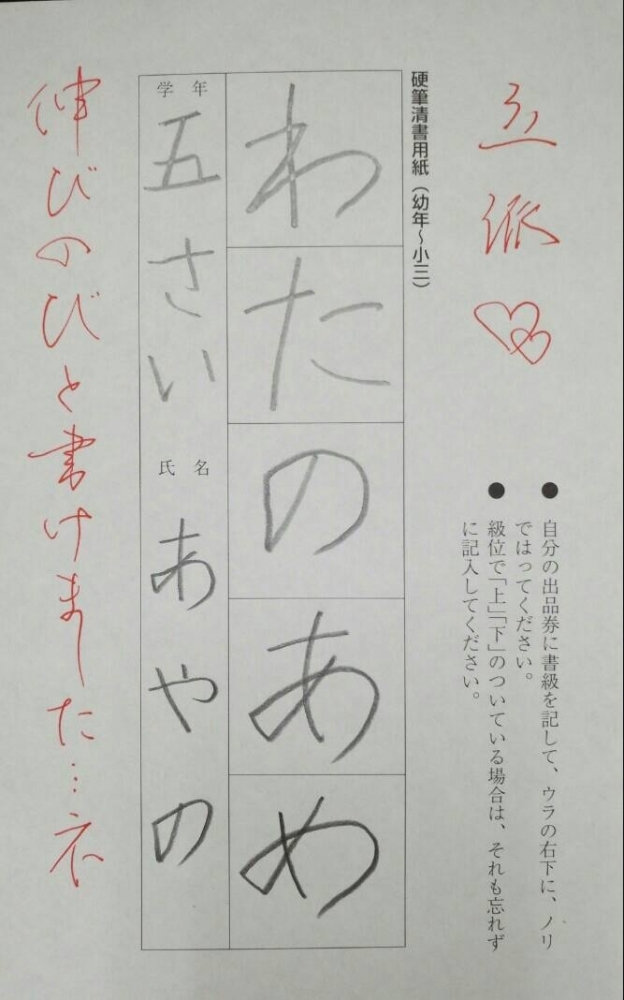 ●自分の出品券に書級を記して、ウラの右下に、ノリ
ではってください。
●級位で「上」「下」のついている場合は、それも忘れず
に記入してください。
立派
硬筆清書用紙（幼年～小三）
わたのあめ
学年
五さい
氏名
あやの
伸びのびと書けました…ネ